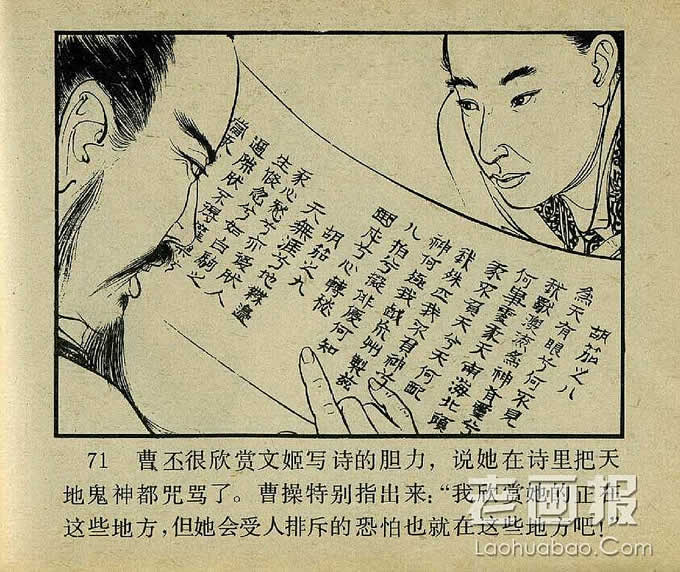 胡笳之八
為天有眼兮何不見
我獨漂流為神有靈兮
何事處我天南海北頭
我不負天兮天何配
我殊匹我不負神兮
神何殛我越荒州製茲
八拍兮擬俳優何知
曲成兮心轉愁
胡笳之九
天無涯兮地無邊
我心愁兮亦復然人
生倏忽兮如白駒之
過隙然不得歡樂
當我
71 曹丕很欣赏文姬写诗的胆力，说她在诗里把天
地鬼神都咒骂了。曹操特别指出来：“我欣赏她的正在
这些地方，但她会受人排斥的恐怕也就在这些地方吧！”
老画报
LaoHuaBao.Com